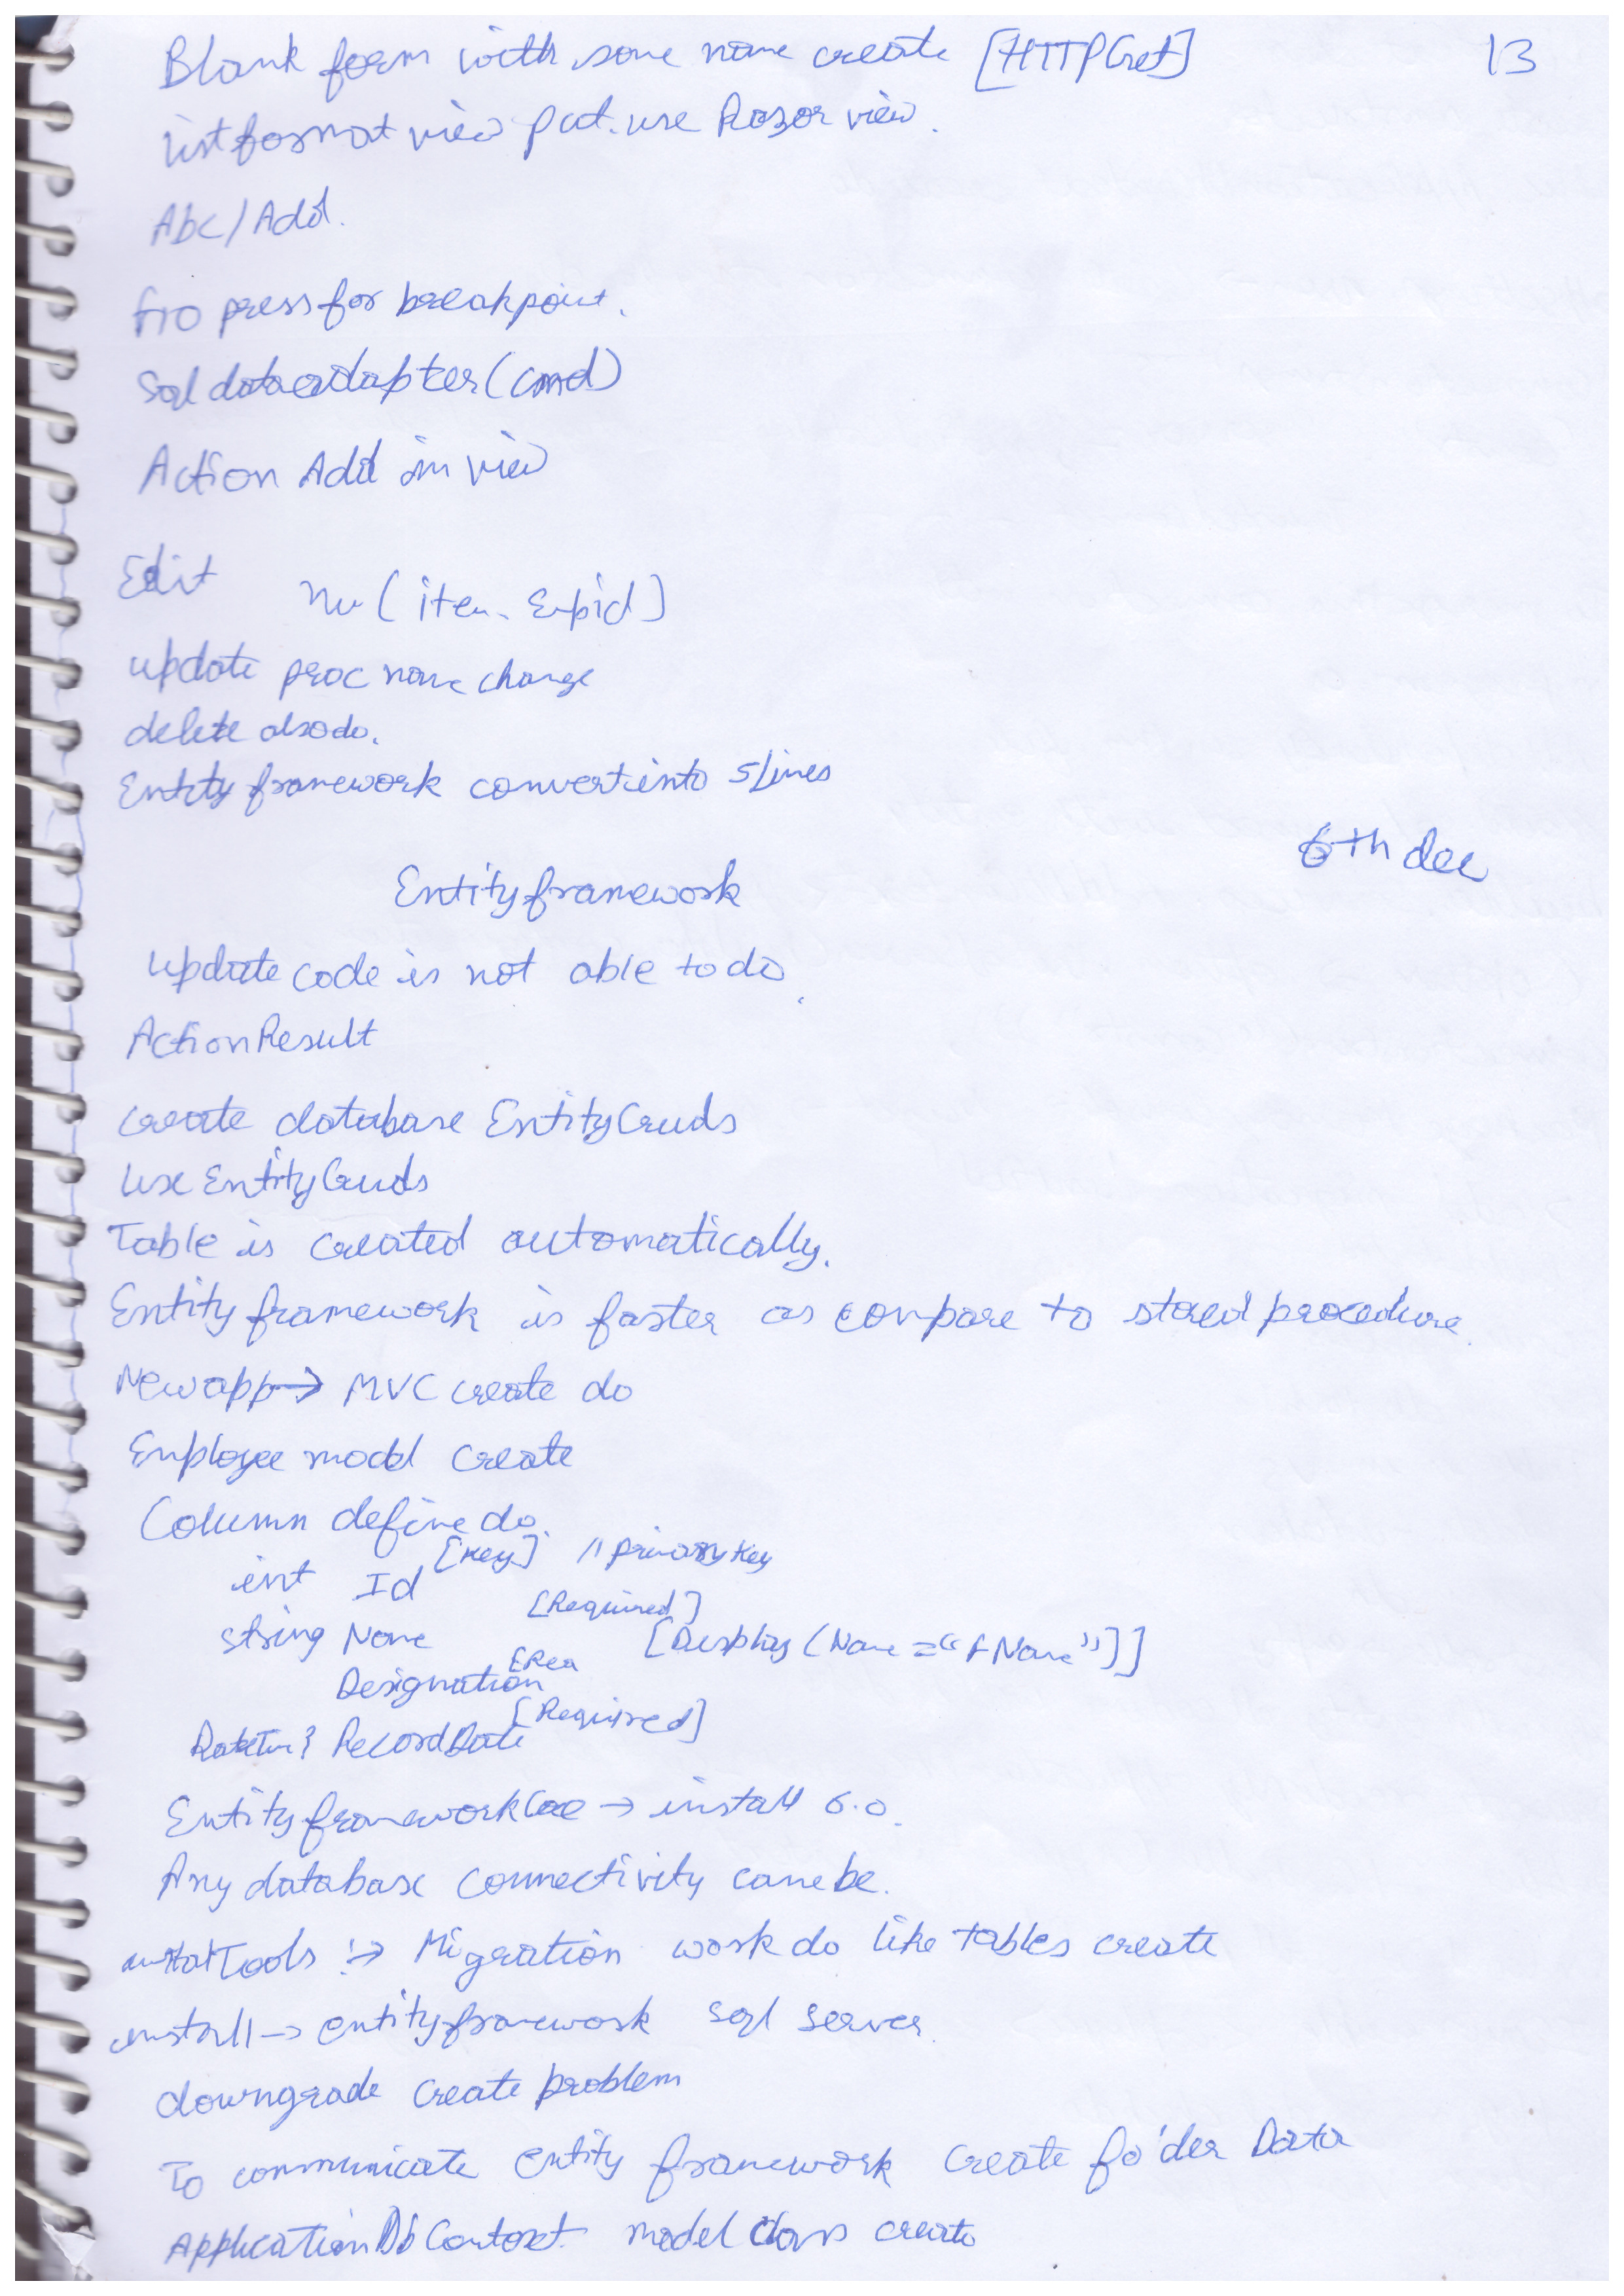 Blank form with some name create [HTTPGet] 13
list format view put. use Razor view.
Abc/Add.
F10 press for breakpoint.
Sql dataadapter(cmd)
Action Add in view
Edit (item.Empid)
update proc name change
delete also do.
Entity framework convert into 5 lines
6th dec
Entity framework
Update code is not able to do.
ActionResult
Create database EntityCruds
Use EntityCruds
Table is created automatically.
Entity framework is faster as compare to stored procedure.
New app → MVC create do
Employee model create
Column define do.
[Key] // primary key
int Id
[Required]
string Name [Display(Name = "fName")]
[Req
Designation
[Required]
DateTime? RecordDate
Entity framework Core → install 6.0.
Any database connectivity can be.
install Tools :→ Migration work do like tables create
install → entity framework sql server.
downgrade create problem
To communicate entity framework create folder Data
ApplicationDbContext model class create